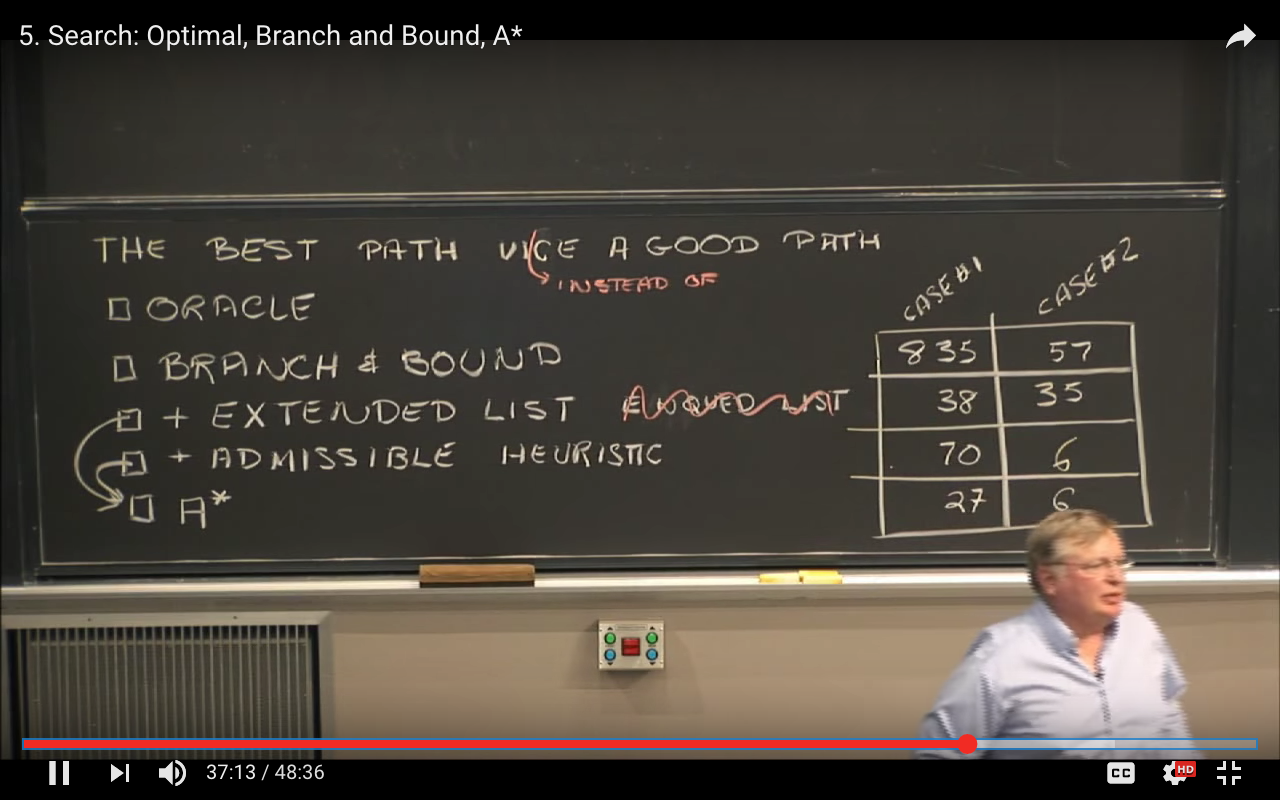 5. Search: Optimal, Branch and Bound, A*
THE BEST PATH VICE A GOOD PATH
INSTEAD OF
ORACLE
BRANCH & BOUND
+ EXTENDED LIST ENQUED LIST
+ ADMISSIBLE HEURISTIC
A*
CASE #1 CASE #2
835 57
38 35
70 6
27 6
37:13 / 48:36
CC HD